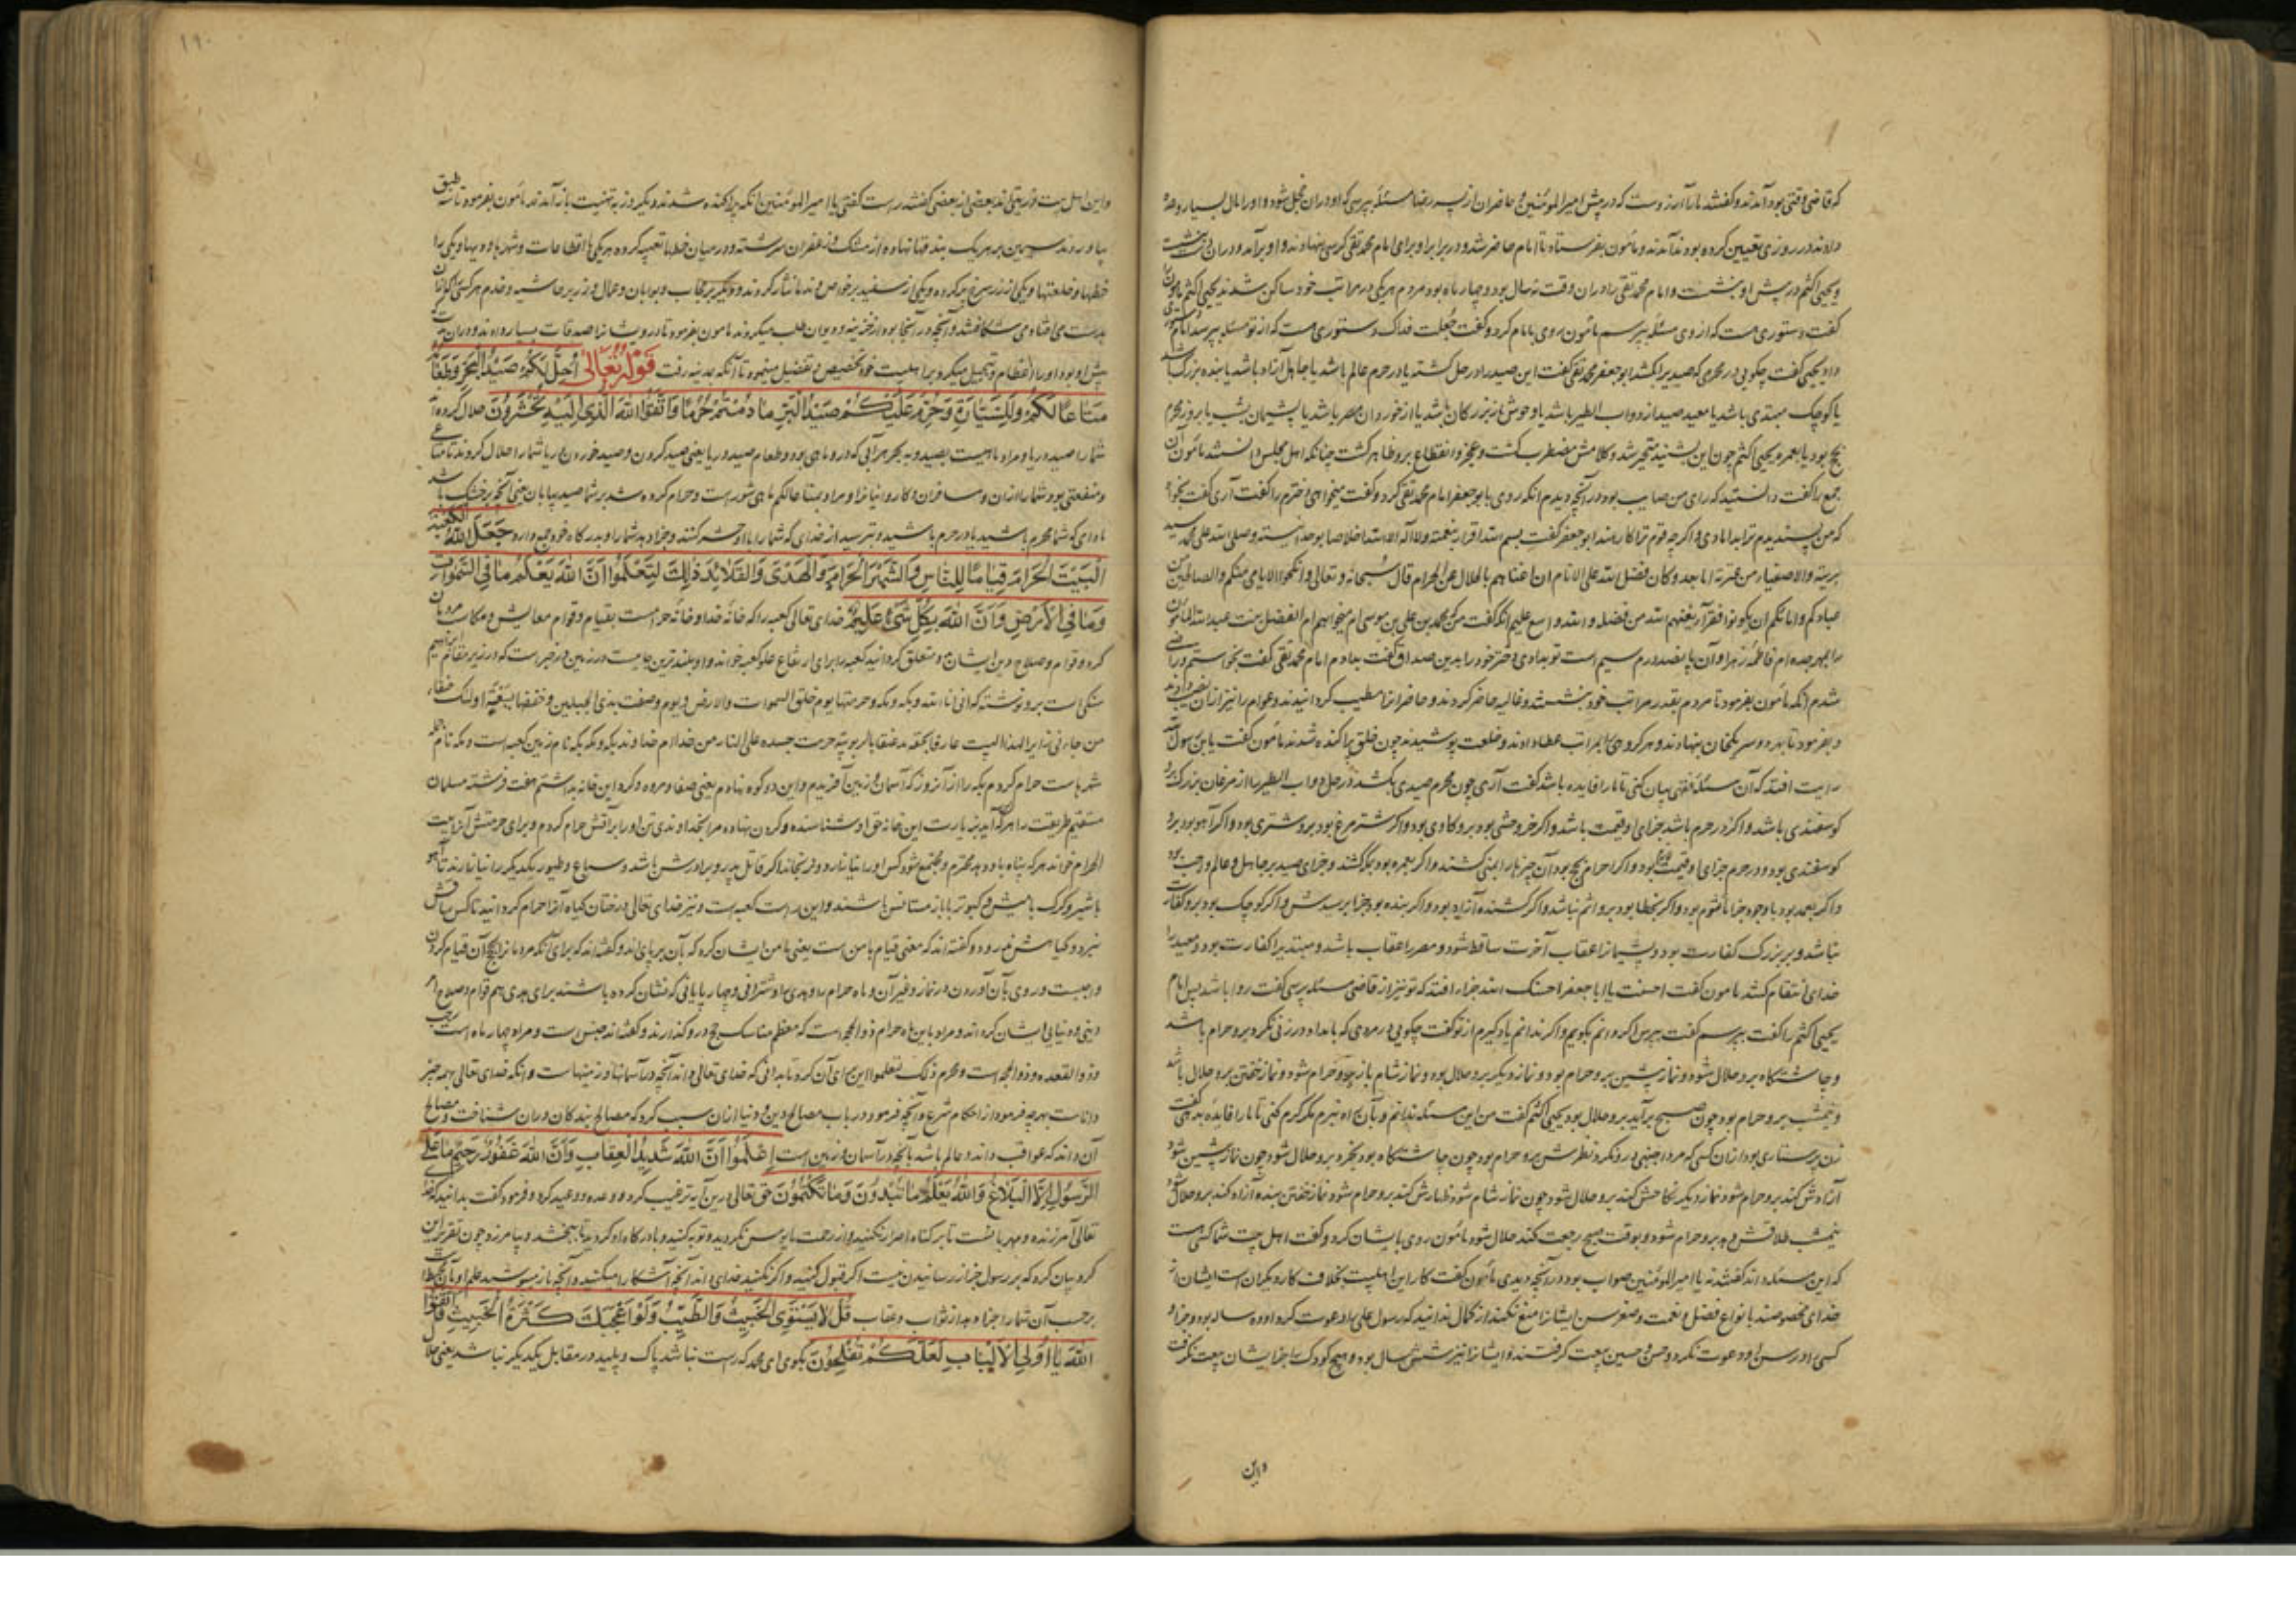 که قاضی وقتی بود آمدند و گفتند ما را آرزوست که در پیش امیرالمؤمنین و حاضران از پسر رضا مسئله بپرسی که او در آن خجل شود و او را مال بسیار وعده
دادند در روزی تعیین کرده بودند آمدند و مأمون بفرستاد تا امام حاضر شد و در برابر او برای امام محمد تقی کرسی بنهادند و او برآمد و در آن نشست
و یحیی اکثم در پیش او بنشست و امام محمد تقی را در آن وقت نه سال بود و چهار ماه بود مردم هر یکی در مراتب خود ساکن شدند یحیی اکثم مأمون را
گفت دستوری هست که از وی مسئله بپرسم مأمون روی بامام کرد و گفت جعلت فداک دستوری هست که از تو مسئله بپرسد امام
داد یحیی گفت چکویی در محرمی که صیدی را بکشد ابو جعفر محمد تقی گفت این صید را در حل کشته یا در حرم عالم باشد یا جاهل آزاد باشد یا بنده بزرک باشد
یا کوچک مبتدی باشد یا معید صید از دواب الطیر باشد یا وحوش از بزرکان باشد یا از خوردان مصر باشد یا پشیمان بشب یا بروز محرم
بحج بود یا بعمره یحیی اکثم چون این بشنید متحیر شد و کلامش مضطرب گشت و عجز و انقطاع برو ظاهر گشت چنانکه اهل مجلس دانستند مأمون آن
جمع را گفت دانستید که رای من صایب بود در آنچه دیدم آنکه روی بابو جعفر امام محمد تقی کرد و گفت میخواهی دخترم را گفت آری گفت بخواه
که من پسندیدم ترا بدامادی و اگرچه قوم ترا کارهند ابو جعفر گفت بسم الله اقرار بنعمته و لا اله الا الله اخلاصا بوحدانیته و صلی الله علی محمد سید
بریته و الاصفیاء من عترته اما بعد و کان فضل الله علی الانام ان اغناهم بالحلال عن الحرام قال سبحانه و تعالی و انکحوا الایامی منکم و الصالحین من
عبادکم و امائکم ان یکونوا فقراء یغنهم الله من فضله و الله واسع علیم آنکه گفت من که محمد بن علی بن موسی ام میخواهم ام الفضل بنت عبدالله المأمون
را بمهر جده ام فاطمه زهرا و آن پانصد درم سیم است تو بدادی دختر خود را بدین صداق گفت بدادم امام محمد تقی گفت بخواستم و راضی
شدم آنکه مأمون بفرمود تا مردم بقدر مراتب خود بنشستند و غالیه حاضر کردند و حاضران را مطیب گردانیدند و عوام را نیز از آن نصیب دادند
و بفرمود تا بهر دو سر یکخان بنهادند و هر گروهی را بمراتب عطا دادند و خلعت پوشیدند چون خلق پراکنده شدند مأمون گفت یا بن رسول الله
رایت افتد که آن مسئله فقهی بیان کنی تا ما را فایده باشد گفت آری چون محرم صیدی بکشد در حل دواب الطیر را از مرغان بزرک برو
گوسفندی باشد و اگر در حرم باشد جزای او قیمت باشد و اگر خر وحشی بود برو گاوی بود و اگر شتر مرغ بود برو شتری بود و اگر آهو بود برو
گوسفندی بود و در حرم جزای او قیمت بود و اگر احرام بحج بود آن چیزها را بمنی کشند و اگر بعمره بود بمکه کشند و جزای صید بر جاهل و عالم واجب بود
و اگر بعمد بود با وجود جزا مأثوم بود و اگر بخطا بود برو اثم نباشد و اگر کشنده آزاد بود و اگر بنده بود جزا بر سیدش و اگر کوچک بود برو کفارت
نباشد و بر بزرک کفارت بود و پشیمان را عقاب آخرت ساقط شود و مصر را عقاب باشد و مبتدی را کفارت بود و معید را
خدای انتقام کشد مامون گفت احسنت یا ابا جعفر احسنک الله جزا رافتد که تو نیز از قاضی مسئله پرسی گفت روا باشد پس امام
یحیی اکثم را گفت بپرسم گفت بپرس اگر دانم بگویم و اگر ندانم یاد گیرم از تو گفت چکویی در مردی که بامداد در زنی نگرد برو حرام باشد
و چاشتگاه برو حلال شود و نماز پیشین برو حرام بود و نماز دیگر برو حلال بود و نماز شام باز برو حرام شود و نماز خفتن برو حلال باشد
و نیمشب برو حرام بود چون صبح برآید برو حلال بود یحیی اکثم گفت من این مسئله ندانم و بآن راه نبرم مگر کرم کنی تا ما را فایده بدهی گفت
زن پرستاری بود از آن کسی که مرد اجنبی درو نگرد نظرش برو حرام بود چون چاشتگاه بود بخرد برو حلال شود چون نماز پیشین شود
آزادش کند برو حرام شود نماز دیگر نکاحش کند برو حلال شود چون نماز شام شود ظهارش کند برو حرام شود نماز خفتن بنده آزاد کند برو حلال شود
نیمشب طلاقش دهد برو حرام شود و بوقت صبح رجعت کند حلال شود مأمون روی بایشان کرد و گفت اهل چت شما کسی هست
که این مسئله داند گفتند نه یا امیرالمؤمنین صواب بود در آنچه دیدی مأمون گفت کار این اهلبیت بخلاف کار دیگران است ایشان از
خدای مخصوصند بانواع فضل و نعمت و صغر سن ایشان را منع نکند از کمال ندانید که رسول علی را دعوت کرد او ده ساله بود و جز او
کسی را در سن او دعوت نکرد و حسن و حسین بیعت کرفتند و ایشان را نیز شش سال بود و هیچ کودک را جز ایشان بیعت نکرفت
و این
١٩٠
و این اهل بیت ذریتی اند بعضی از بعضی گفتند راست گفتی یا امیرالمؤمنین آنکه پراکنده شدند و دیگر روز به تهنیت باز آمدند مأمون بفرمود تا سه طبق
بیاوردند سیمین بر هر یک بندقها نهاده از مشک و زعفران سرشته و در میان خطها تعبیه کرده هر یکی با اقطاعات و شهرها و دیهها و یکی را
خطها و خلعتها و یکی از زر سرخ پر کرده و یکی از سفید بر خواص و ندما نثار کردند و دیگر بر حجاب و بوابان و عمال و وزیر و حاشیه و خدم هر کسی که آن
بدست می افتاد می شکافتند و آنچه در آنجا بود از خزینه و دیوان طلب میکردند مامون بفرمود تا درویشان را صدقات بسیار دادند و در آن مدت
پیش او بود او را اعظام و تبجیل میکرد بر اهلبیت خود تخصیص و تفضیل مینمود تا آنکه بمدینه رفت قوله تعالی اُحِلَّ لَكُمْ صَيْدُ الْبَحْرِ وَطَعَامُهُ
مَتَاعًا لَكُمْ وَلِلسَّيَّارَةِ وَحُرِّمَ عَلَيْكُمْ صَيْدُ الْبَرِّ مَا دُمْتُمْ حُرُمًا وَاتَّقُوا اللَّهَ الَّذِي إِلَيْهِ تُحْشَرُونَ حلال کرده اند
شما را صید دریا و مراد ماهیست بصید و به بحر هر آبی که درو ماهی بود و طعام صید دریا یعنی صید کردن و صید خوردن دریا شما را حلال کردند تا متاع
و منفعتی بود شما را از آن و مسافران و کاروانیان را و مراد بمتاعا لکم ماهی شور است و حرام کرده شد بر شما صید بیابان یعنی آنچه بر خشک باشد
مادامی که شما محرم باشید یا در حرم باشید و بترسید از خدای که شما را با او حشر کنند و جزا دهد شما را و بدرگاه خود جمع دارد جَعَلَ اللَّهُ الْكَعْبَةَ
الْبَيْتَ الْحَرَامَ قِيَامًا لِلنَّاسِ وَالشَّهْرَ الْحَرَامَ وَالْهَدْيَ وَالْقَلَائِدَ ذَلِكَ لِتَعْلَمُوا أَنَّ اللَّهَ يَعْلَمُ مَا فِي السَّمَوَاتِ
وَمَا فِي الْأَرْضِ وَأَنَّ اللَّهَ بِكُلِّ شَيْءٍ عَلِيمٌ خدای تعالی کعبه را که خانه خدا و خانه حرامست بقیام و قوام معایش و مکاسب مردمان
کرد و قوام و صلاح دین ایشان و متعلق گردانید کعبه را برای ارتفاع علو کعبه خواند و او بلندترین جایست در زمین در خبر است که در زیر مقام ابراهیم
سنگی است برو نوشته که انی انا الله ذو بکة و حرمتها یوم خلق السموات و الارض و یوم وضعت هذین الجبلین و حففتها بسبعة املاک حنفاء
من جاءنی زایرا لهذا البیت عارفا بحقه مذعنا بالربوبیة حرمت جسده علی النار من خداام خداوند بکه و مکه بکه نام زمین کعبه است و مکه نام جمله
شهر است حرام کردم بکه را از آن روز که آسمان و زمین آفریدم و این دو کوه بنهادم یعنی صفا و مروه و گرد این خانه بداشتم هفت فرشته مسلمان
مستقیم طریقت را هر که آید بزیارت این خانه حق او شناسنده و گردن نهاده مرا بخداوندی تن او را بر آتش حرام کردم و برای حرمتش آن را بیت
الحرام خواند هر که پناه با او دهد محترم و مجتمع شود کس او را نیازارد و نرنجاند اگر قاتل پدر و برادرش باشد و سباع و طیور یکدیگر را نیازارند تا آهو
با شیر و گرک با میش و کبوتر با باز مستانس باشند و این راست کعبه است و نیز خدای تعالی درختان گیاه آن را حرام گردانید تا کس شاخش
نبرد و گیاهش ندرود و گفته اند که معنی قیام با من است یعنی با من ایشان کرد که بآن برپای اند و گفته اند که برای آنکه مردمان را بحج آن قیام کردن
واجبست و روی بآن آوردن در نماز و غیر آن و ماه حرام را و هدی را و شترانی و چهارپایانی که نشان کرده باشند برای هدی هم قوام و صلاح امر
دینی و دنیایی ایشان کرد اند و مراد باین ماه حرام ذوالحجه است که معظم مناسک حج درو گذارند و گفته اند جنس است و مراد چهار ماه است رجب
و ذوالقعده و ذوالحجه است و محرم ذلک لتعلموا این برای آن کرد تا بدانی که خدای تعالی داند آنچه در آسمانها و زمینهاست و آنکه خدای تعالی بهمه چیز
داناست بهر چه فرمود از احکام شرع و آنچه فرمود در باب مصالح دین و دنیا از آن سبب کرد که مصالح بندگان در آن شناخت و مصالح
آن داند که عواقب داند و عالم باشد بآنچه در آسمان و زمین است اِعْلَمُوا أَنَّ اللَّهَ شَدِيدُ الْعِقَابِ وَأَنَّ اللَّهَ غَفُورٌ رَحِيمٌ مَا عَلَى
الرَّسُولِ إِلَّا الْبَلَاغُ وَاللَّهُ يَعْلَمُ مَا تُبْدُونَ وَمَا تَكْتُمُونَ حق تعالی درین آیه ترغیب کرد و وعده و وعید کرد و فرمود گفت بدانید که خدای
تعالی آمرزنده و مهربانست تا بر گناه اصرار نکنید و از رحمت مایوس نگردید و توبه کنید و با درگاه او گردید تا ببخشد و بیامرزد چون تقریر این
کرد بیان کرد که بر رسول جز از رسانیدن نیست اگر قبول کنید و اگر نکنید خدای داند آنچه آشکارا میکنید و آنچه باز میپوشید علم او بآن محیط است
برحسب آن شما را جزا دهد از ثواب و عقاب قُلْ لَا يَسْتَوِي الْخَبِيثُ وَالطَّيِّبُ وَلَوْ أَعْجَبَكَ كَثْرَةُ الْخَبِيثِ فَاتَّقُوا
اللَّهَ يَا أُولِي الْأَلْبَابِ لَعَلَّكُمْ تُفْلِحُونَ بگوی ای محمد که راست نباشد پاک و پلید در مقابل یکدیگر نباشد یعنی حلال